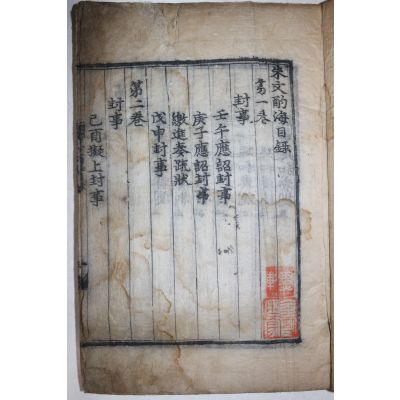 朱文酌海目錄
第一卷
封事
壬午應詔封事
庚子應詔封事
繳進奏疏狀
戊申封事
第二卷
封事
己酉擬上封事